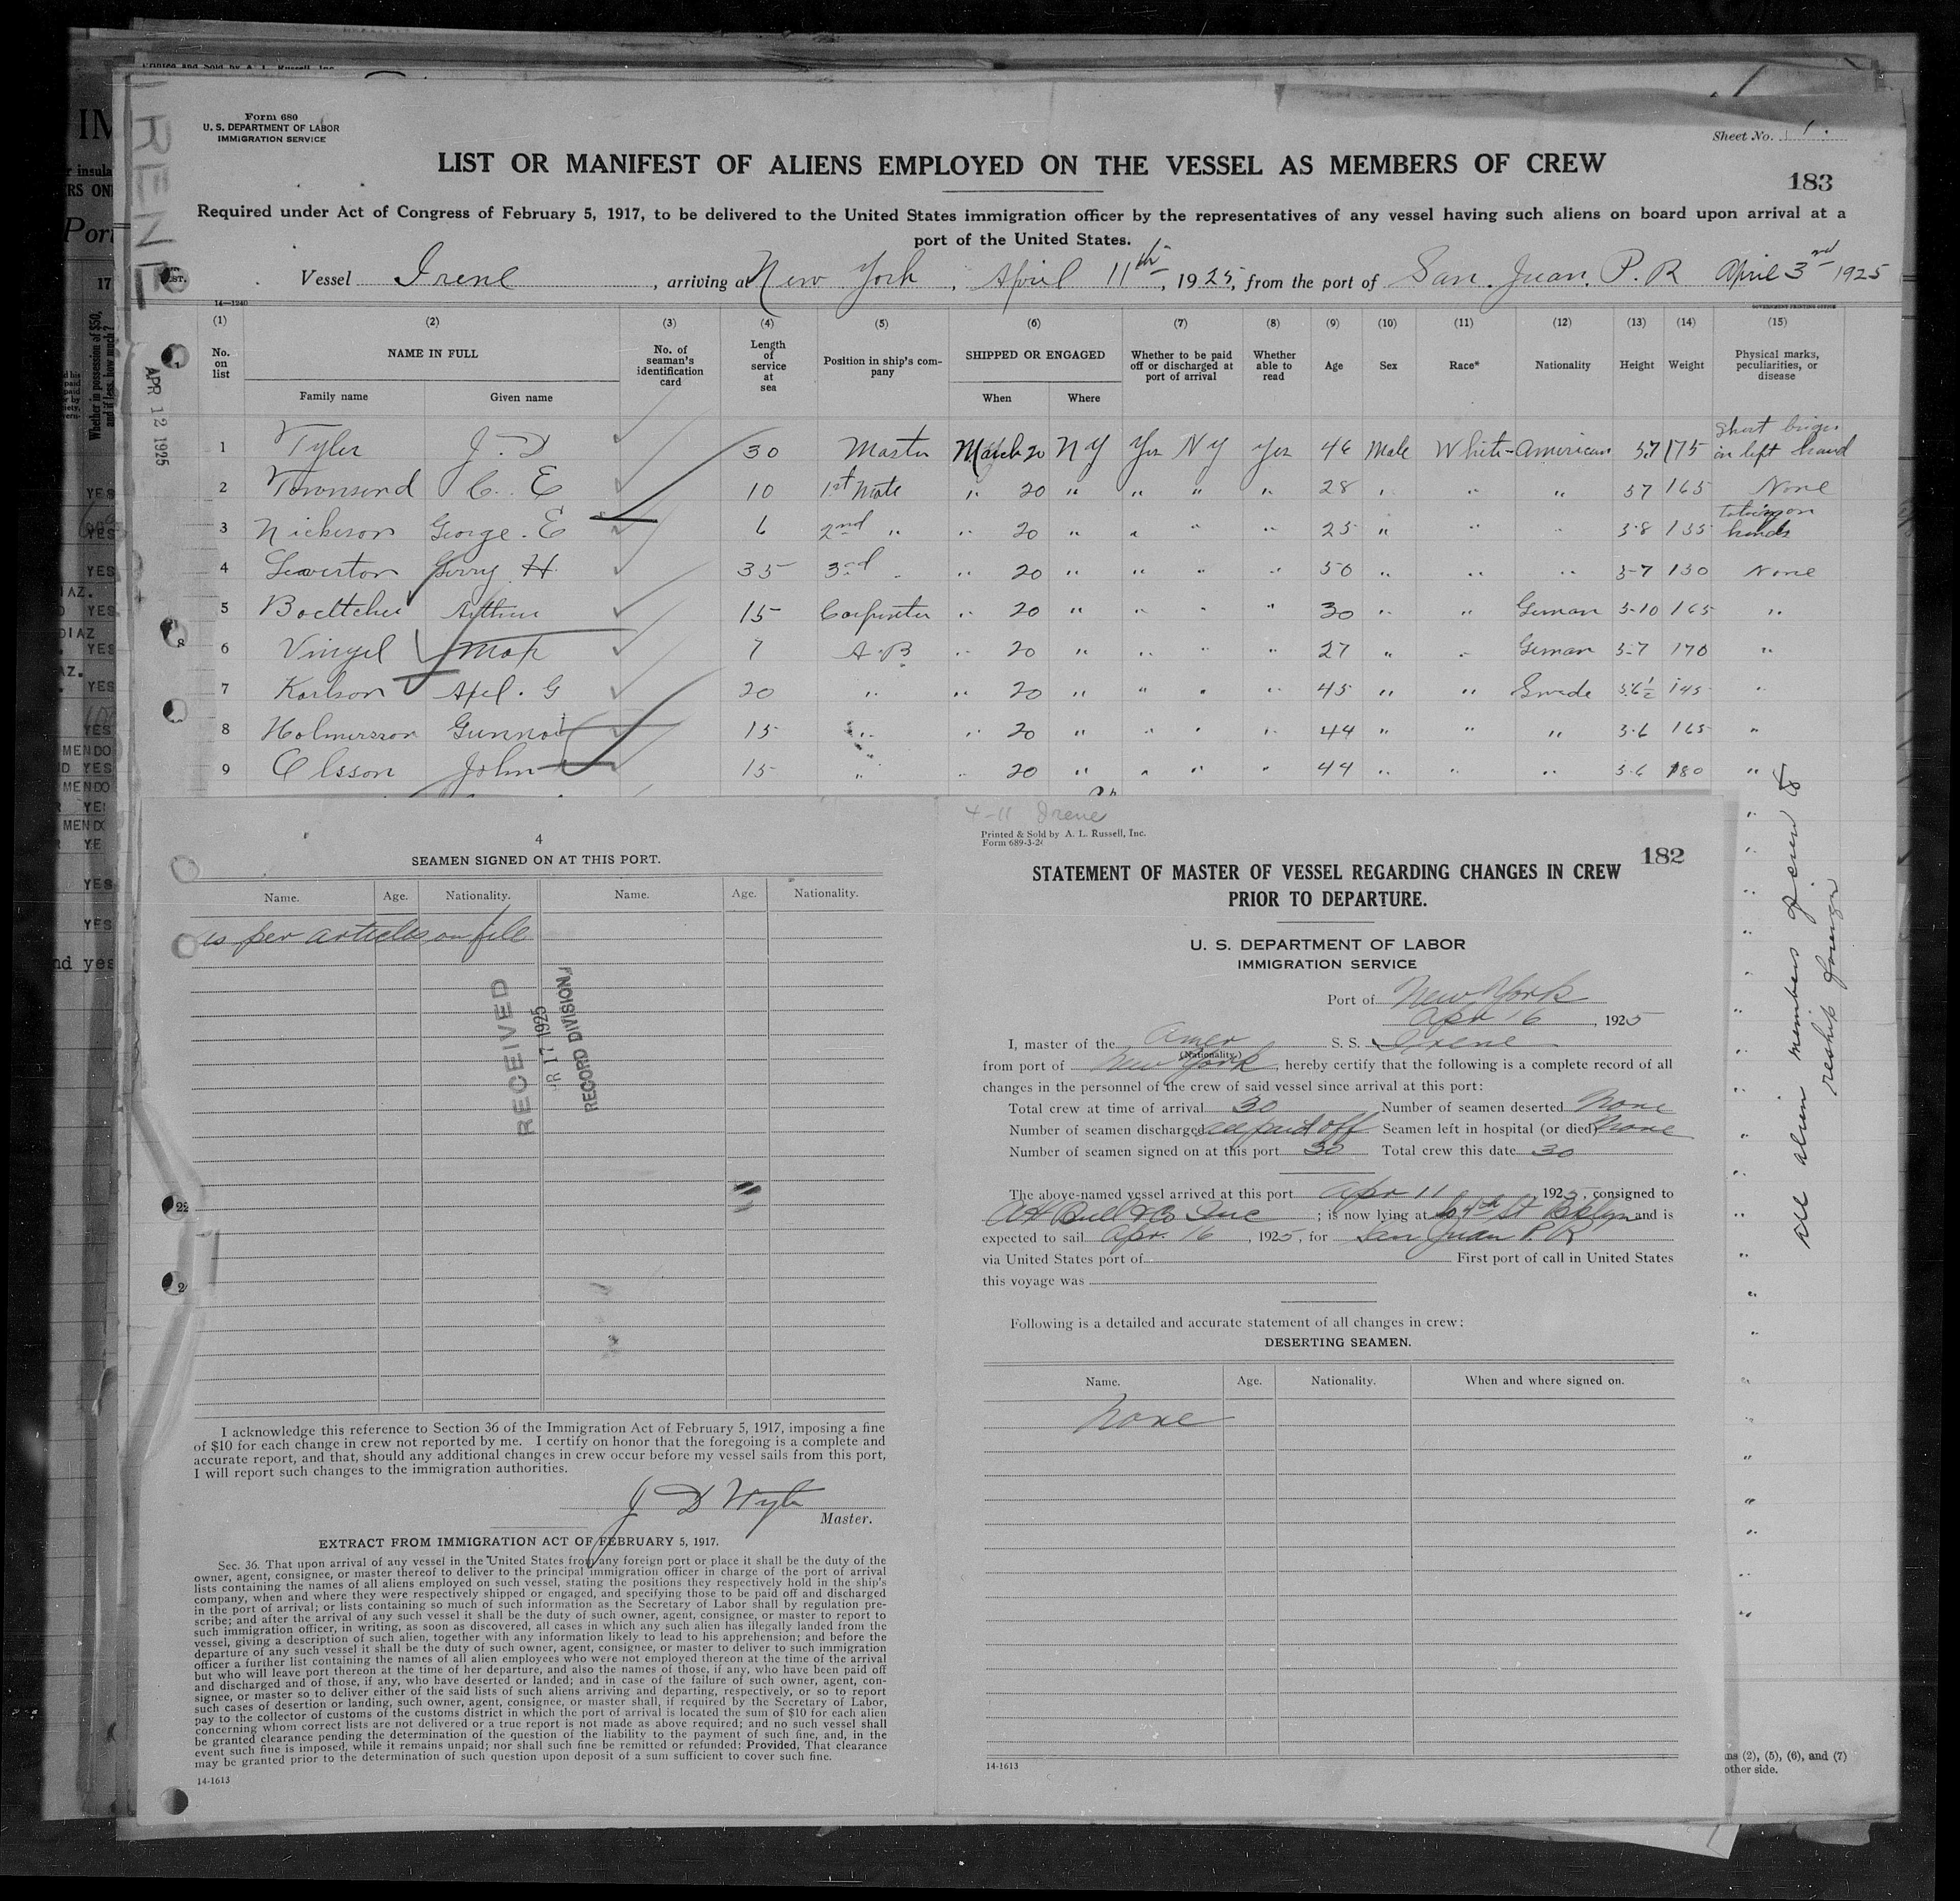 Form 680
U. S. DEPARTMENT OF LABOR
IMMIGRATION SERVICE
Sheet No. 1.
LIST OR MANIFEST OF ALIENS EMPLOYED ON THE VESSEL AS MEMBERS OF CREW
183
Required under Act of Congress of February 5, 1917, to be delivered to the United States immigration officer by the representatives of any vessel having such aliens on board upon arrival at a
port of the United States.
Vessel Irene, arriving at New York, April 11th, 1925, from the port of San Juan. P. R April 3rd 1925
14—1240
GOVERNMENT PRINTING OFFICE
(1) (2) (3) (4) (5) (6) (7) (8) (9) (10) (11) (12) (13) (14) (15)
No. on list
NAME IN FULL
Family name Given name
No. of seaman's identification card
Length of service at sea
Position in ship's company
SHIPPED OR ENGAGED
When Where
Whether to be paid off or discharged at port of arrival
Whether able to read
Age Sex Race* Nationality Height Weight
Physical marks, peculiarities, or disease
1 Tyler J. D 30 Master March 20 N Y Yes N Y Yes 46 Male White American 5.7 175 Short finger on left hand
2 Townsend C. E 10 1st Mate " 20 " " " " 28 " " " 57 165 None
3 Nickerson George. E 6 2nd " " 20 " " " " 25 " " " 5-8 135 hands
4 Leverton H. 35 3rd " " 20 " " " " 50 " " " 5-7 130 None
5 Arthur 15 Carpenter " 20 " " " " 30 " " German 5-10 165 "
6 7 A.B. " 20 " " " " 27 " " German 5-7 170 "
7 Karlson Axel. G 20 " " 20 " " " " 45 " " Swede 5.6½ 145 "
8 Holmersson Gunnar 15 " " 20 " " " " 44 " " " 5.6 165 "
9 Olsson John 15 " " 20 " " " " 44 " " " 5-6 180 "
IRENE
APR 12 1925
all alien members of crew to
reship foreign
4
SEAMEN SIGNED ON AT THIS PORT.
Name. Age. Nationality. Name. Age. Nationality.
as per articles on file
RECEIVED
R 17 1925
RECORD DIVISION
I acknowledge this reference to Section 36 of the Immigration Act of February 5, 1917, imposing a fine
of $10 for each change in crew not reported by me. I certify on honor that the foregoing is a complete and
accurate report, and that, should any additional changes in crew occur before my vessel sails from this port,
I will report such changes to the immigration authorities.
J D
Master.
EXTRACT FROM IMMIGRATION ACT OF FEBRUARY 5, 1917.
Sec. 36. That upon arrival of any vessel in the United States from any foreign port or place it shall be the duty of the
owner, agent, consignee, or master thereof to deliver to the principal immigration officer in charge of the port of arrival
lists containing the names of all aliens employed on such vessel, stating the positions they respectively hold in the ship's
company, when and where they were respectively shipped or engaged, and specifying those to be paid off and discharged
in the port of arrival; or lists containing so much of such information as the Secretary of Labor shall by regulation pre-
scribe; and after the arrival of any such vessel it shall be the duty of such owner, agent, consignee, or master to report to
such immigration officer, in writing, as soon as discovered, all cases in which any such alien has illegally landed from the
vessel, giving a description of such alien, together with any information likely to lead to his apprehension; and before the
departure of any such vessel it shall be the duty of such owner, agent, consignee, or master to deliver to such immigration
officer a further list containing the names of all alien employees who were not employed thereon at the time of the arrival
but who will leave port thereon at the time of her departure, and also the names of those, if any, who have been paid off
and discharged and of those, if any, who have deserted or landed; and in case of the failure of such owner, agent, con-
signee, or master so to deliver either of the said lists of such aliens arriving and departing, respectively, or so to report
such cases of desertion or landing, such owner, agent, consignee, or master shall, if required by the Secretary of Labor,
pay to the collector of customs of the customs district in which the port of arrival is located the sum of $10 for each alien
concerning whom correct lists are not delivered or a true report is not made as above required; and no such vessel shall
be granted clearance pending the determination of the question of the liability to the payment of such fine, and, in the
event such fine is imposed, while it remains unpaid; nor shall such fine be remitted or refunded: Provided, That clearance
may be granted prior to the determination of such question upon deposit of a sum sufficient to cover such fine.
14-1613
4-11 Irene
Printed & Sold by A. L. Russell, Inc.
Form 689-3-24
182
STATEMENT OF MASTER OF VESSEL REGARDING CHANGES IN CREW
PRIOR TO DEPARTURE.
U. S. DEPARTMENT OF LABOR
IMMIGRATION SERVICE
Port of New York
Apr 16, 1925
I, master of the Amer S. S. Irene
(Nationality.)
from port of New York, hereby certify that the following is a complete record of all
changes in the personnel of the crew of said vessel since arrival at this port:
Total crew at time of arrival 30 Number of seamen deserted None
Number of seamen discharged all paid off Seamen left in hospital (or died) None
Number of seamen signed on at this port 30 Total crew this date 30
The above-named vessel arrived at this port Apr 11, 1925, consigned to
A H Bull & Co Inc; is now lying at So 4th St Bklyn and is
expected to sail Apr. 16, 1925, for San Juan P. R
via United States port of First port of call in United States
this voyage was
Following is a detailed and accurate statement of all changes in crew:
DESERTING SEAMEN.
Name. Age. Nationality. When and where signed on.
None
14-1613
ns (2), (5), (6), and (7)
other side.